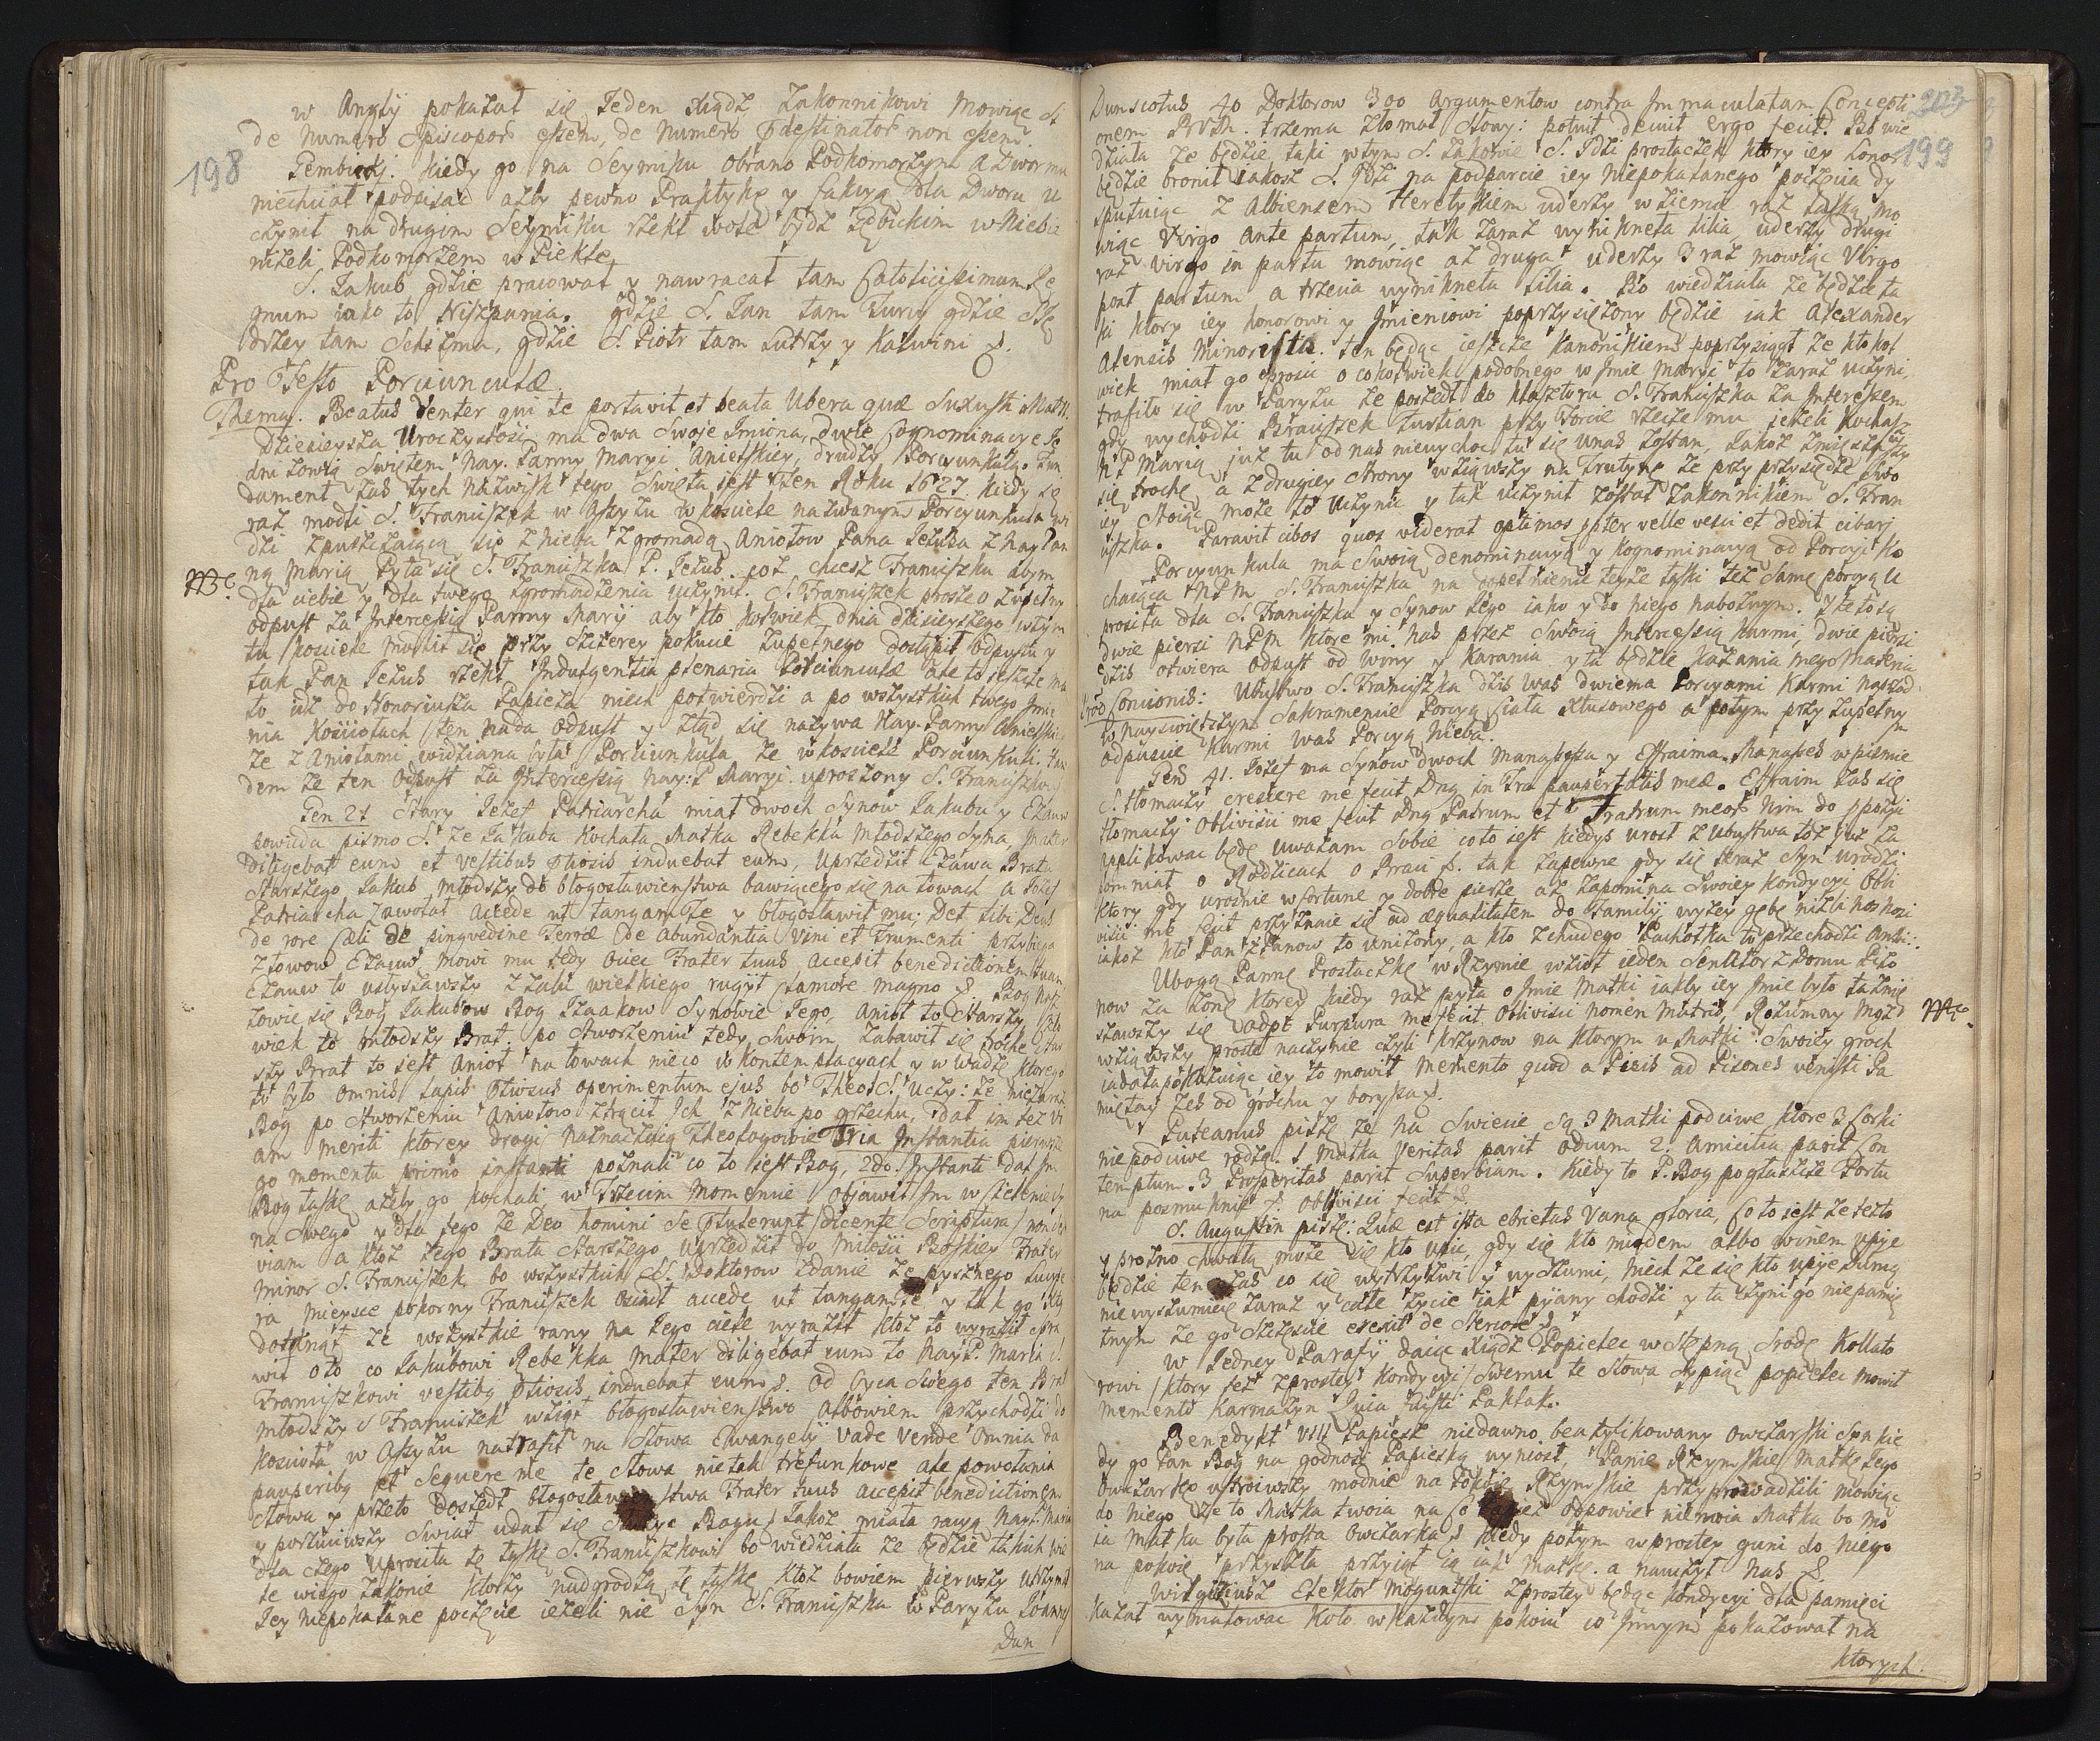 w Anglij pokazał się Jeden xiądz Zakonnikowi mowiąc si
de numero Episcopor essem, de numero pdestinator non essem.
198
Gembicki. Kiedy go na Seymiku obrano Podkomorzym a Dwor mu
niechciał podpisać ażby pewno Praktykę y fakcyą dla Dworu u
czynił na drugim Seymiku rzekł wolę bydz Gębickim w Niebie
niżeli Podkomorzem w Piekle.
S. Jakub gdzie pracował y nawracał tam Catolicissimum Re
gnum iako to Hiszpania. gdzie S. Jan tam Turcy gdzie S. Ję
drzey tam Schizma, gdzie S. Piotr tam Lutrzy y Kalwini &.
Pro Festo Porciunculæ.
Thema. Beatus Venter qui te portavit et beata Ubera quæ Suxisti
Dzisieysza Uroczystość ma dwa Swoje Imiona, dwie Cognominacye Je
dni zowią Swiętem Nay. Panny Maryi Anielskiey, drudzy Porcyunkulą. Fun
dament zas tych nazwisk tego Swięta jest ten Roku 1627. kiedy się
raz modli S. Franciszek w Assyżu w kosciele nazwanym Porcyunkula wi
dzi zpuszczaiącą się z nieba z gromadą Aniołow Pana Jezusa z Nay Pan
ną Marią Pyta się S. Franciszka P. Jezus coż chcesz Franciszku abym
NB.
dla ciebie y dla twego zgromadzenia uczynił. S. Franciszek proszę o zupełny
odpust za Intercessią Panny Marij aby kto kolwiek dnia dzisieyszego w tym
tu kosciele modlił się przy szczerey pokucie zupełnego dostąpił odpustu y
tak Pan Jezus rzekł Indulgentia plenaria Porciunculæ ale to jeszcze ma
ło idz do Honoriusza Papieża niech potwierdzi a po wszystkich twego Imie
nia Kosciołach ten nada odpust y ztąd się nazywa Nay. Panny Anielskiey
że z Aniołami widziana była Porciunkula że w kosciele Porciunkuli. 
dem że ten odpust za Intercessią Nay: P Maryi uproszony S. Franciszkowi
Gen 27 Stary Patriarcha miał dwoch Synow Jakuba y Ezaw
powiada pismo S. że Jakuba kochała Matka Rebekka młodszego Syna, Mater
diligebat eum et vestibus ptiosis induebat eum, uprzedził Ezawa Brata
Starszego Jakub młodszy do błogosławienstwa bawiącego się na łowach a
Patriarcha zawołał accede ut tangam Te y błogosławił mu; Det tibi Deus
de rore Cæli de pingvedine Terræ de abundantia Vini et Frumenti przybiega
z łowow Ezauw mowi mu tedy Ociec Frater tuus accepit benedictionem tuam
Ezauw to usłyszawszy z żalu wielkiego ryczył clamore magno & Bog
zowie się Bog Jakubow Bog Izaakow Synowie Jego, Anioł to Starszy
wiek to młodszy Brat. po stworzeniu tedy Swoim zabawił się troche
szy Brat to jest Anioł na łowach nieco w kontemplacyach y w wadze ktorego
tu było omnis lapis ptiosus operimentum ejus bo Theol. S. uczy: że niezaraz
Bog po stworzeniu Aniołow ztrącił Ich z nieba po grzechu, dał im też vi
am meriti ktorey drogi naznaczaią Theologowie Tria Instantia pierwsze
go momentu primo instanti poznali co to jest Bog, 2do Instanti dał Im
Bog łaskę ażeby go kochali w Trzecim momencie objawił Im w Cielenie Sy
na Swego y dla tego że Deo homini se
viam a ktoż tego Brata Starszego uprzedził do miłości Boskiey Frater
minor S. Franciszek, bo wszystkich SS. Doktorow zdanie że pysznego Lucyfe
ra mieysce pokorny Franciszek osiadł accede ut tangam te y tak go Bog
dotknął że wszystkie rany na Jego ciele wyraził ktoż to wyraził spra
wił oto co Jakubowi Rebekka Mater diligebat eum to Nay P. Maria S.
Franciszkowi vestibq ptiosis induebat eum &. Od Oyca Swego ten Brat
młodszy S Franciszek wziął błogosławienstwo albowiem przychodzi do
koscioła w Assyżu natrafił na Słowa Ewangelij Vade vende omnia da
pauperibq et Sequere me te słowa nie tak trefunkowe ale powołania
słowa y przeto doszedł błogosławienstwa Frater tuus accepit benedictionem
y porzuciwszy Swiat udał się służyć Bogu Jakoż miała racyą Nay P. Maria
dla czego uprosiła tę łaskę S. Franciszkowi bo wiedziała że będzie takich wie
le w iego zakonie ktorzy nadgrodzą tę łaskę ktoż bowiem pierwszy utrzymał
Jey Niepokalane poczęcie jeżeli nie Syn S. Franciszka w Paryżu Joannes
Dun
203
199
Dunscotus 40 Doktorow 300 Argumentow contra Immaculatam Concepti
onem BVM. trzema złomał słowy: potuit decuit ergo fecit. Bo wie
działa że będzie taki w tym S. Zakonie S. Idzi prostaczek ktory iey honor
będzie bronił jakosz S. Idzi na podparcie iey Niepokalanego poczęcia dy
sputuiąc z Albiensem Heretykiem uderzy w ziemię raz laską mo
wiąc Virgo ante partum, tak zaraz wyniknęła lilia, uderzy drugi
raz Virgo in partu mowiąc aż druga uderzy 3 raz mowiąc Virgo
post partum a trzecia wyniknęła lilia. Bo wiedziała że będzie ta
ki ktory iey honorowi y Imieniowi poprzysiężony będzie iak Alexander
Alensis Minorista. ten będąc ieszcze Kanonikiem poprzysiągł że ktokol
wiek miał go prosić o cokolwiek podobnego w Imie Maryi to zaraz uczyni,
trafiło się w Paryżu że poszedł do klasztora S. Franciszka za Interessem
gdy wychodzi Braciszek Furtian przy Forcie rzecze mu jeżeli kochasz
N P Marią już tu od nas niewychoc tu się u nas zostan, jakoż zmięszawszy
się troche a z drugiey strony wziąwszy na Trutynę że przy przysiędze swo
iey stoiąc może to uczynić y tak uczynił został Zakonnikiem S. Fran
ciszka. Paravit cibos quos viderat optimos pter velle vesci et dedit cibari
Porcyunkula ma Swoią denominacyą y kognominacyą od Porcyi ko
chaiąca NPM S. Franciszka na dopełnienie teyże łaski też Samę porcyą u
prosiła dla S. Franciszka y Synow Jego iako y do niego nabożnym. Y te to są
dwie piersi NPM ktoremi nas przez Swoią Intercessią karmi, dwie piersi
dziś otwiera odpust od winy y karania y ta będzie kazania mego Materia
Conionis: Ubustwo S. Franciszka dziś was dwiema Porcyami karmi naprzod
w Nayświętszym Sakramencie Porcyą Ciała Xtusowego a potym przy zupełnym
odpuscie karmi was Porcyą Nieba.
Gen 41. Jozef ma Synow dwoch Manassesa y Effraima. Manasses w pismie
S. tłomaczy crescere me fecit Dnq in Tra paupertatis meæ. Effraim zas się
tłomaczy Oblivisci me fecit Dnq Patrum et Fratrum meor nim do ppozycji
applikować będę uważam sobie co to jest kiedyś urosł z ubustwa toż już za
pomniał o Rodzicach o Braci &. tak zapewne gdy się teraz Syn urodzi
ktory gdy urosnie w fortunę y dobre pierze aż zapomina Swoiey kondycyi Obli
visci me fecit przyznaie się ad æqualitatem do Familij wyżey gębę niżli nos nosi
jakoż kto Pan z Panow to uniżony, a kto z chudego Pachołka to przechodzi Ambi:
Ubogą Pannę Prostaczkę w Rzymie wziął ieden Senator z Domu Pizo
now za żonę ktorey kiedy raz pyta o Imie Matki iakby iey Imie było tażmię
NB.
stawszy się odpo Purpura me fecit Oblivisci nomen Matris, Rozumny Mąż
wziąwszy proste naczynie czyli krzynow na ktorym u Matki Swoiey groch
iadała pokazuiąc iey to mowił memento quod a Pisis ad Pisones venisti Pa
miętay żeś od grochu y borysza &.
Puteanus pisze że na Swiecie są 3 Matki podciwe ktore 3 Corki
niepodciwe rodzą. 1 Matka Veritas parit odium 2. Amicitia parit Con
temptum. 3 Prosperitas parit Superbiam. Kiedy to P. Bog pogłaszcze Fortu
na posmuknie &. oblivisci fecit &.
S. Augustin pisze: Quæ est ista ebrietas Vana gloria, Co to jest że też to
y prożno chwałą może się kto upić, gdy się kto miodem albo winem upije
będzie ten czas co się wytrzyźwi y wyszumi, niech że się kto upije dumą
niewyszumieie zaraz y całe życie iak pijany chodzi y ta czyni go niepamię
tnym że go Szczęście erexit de Stercore &.
W Jedney Parafij daiąc xiądz Popielec w Stępną Srodę Kollato
rowi ktory też z prostey kondycyi Swemu te Słowa sypiąc popielec mowił
Memento Karmazyn Quia fuisti Łaktak.
Benedykt VIII Papiesz niedawno beatyfikowany owczarski Syn kie
dy go Pan Bog na godność Papieską wyniosł, Panie Rzymskie Matkę Jego
Owczarkę ustroiwszy modnie na Pokoie Rzymskie przyprowadziły mowiąc
do niego że to Matka twoia na co Papież odpowie nie moia Matka bo mo
ia Matka była prosta Owczarka &. Kiedy potym w prostey guni do niego
na pokoie przyszła przyiął ią iak Matkę. a nauczył nas &.
Wiligizius Elektor Moguntski z prostey będąc kondycyi dla pamięci
kazał wymalować koło w każdym pokoiu co Innym pokazował na
ktorych.